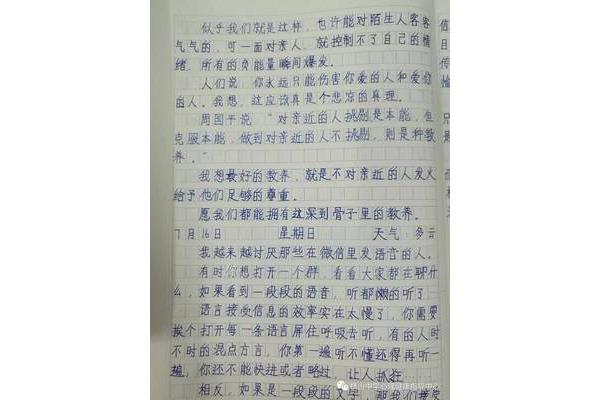 似乎我们就是这样，也许能对陌生人客客
气气的，可一面对亲人，就控制不了自己的情
绪，所有的负能量瞬间爆发。
人们说，你永远只能伤害你爱的人和爱你
的人。我想，这应该真是个悲凉的真理。
周国平说，“对亲近的人挑剔是本能，但
克服本能，做到对亲近的人不挑剔，则是种教
养。”
我想最好的教养，就是不对亲近的人发火
给予他们足够的尊重。
愿我们都能拥有这深到骨子里的教养。
7月16日 星期日 天气：多云
我越来越讨厌那些在微信里发语言的人。
有时你想打开一个群，看看大家都在聊什
么，如果看到一段段的语音，听都懒的听了
语言接受信息的效率实在太慢了，你需要
挨个打开每一条语言屏住呼吸去听，有的人时
不时的混点方言，你第一遍听不懂还得再听一
遍，你还不能快进或者略过，让人抓狂
相反，如果是一段段的文字，那我们